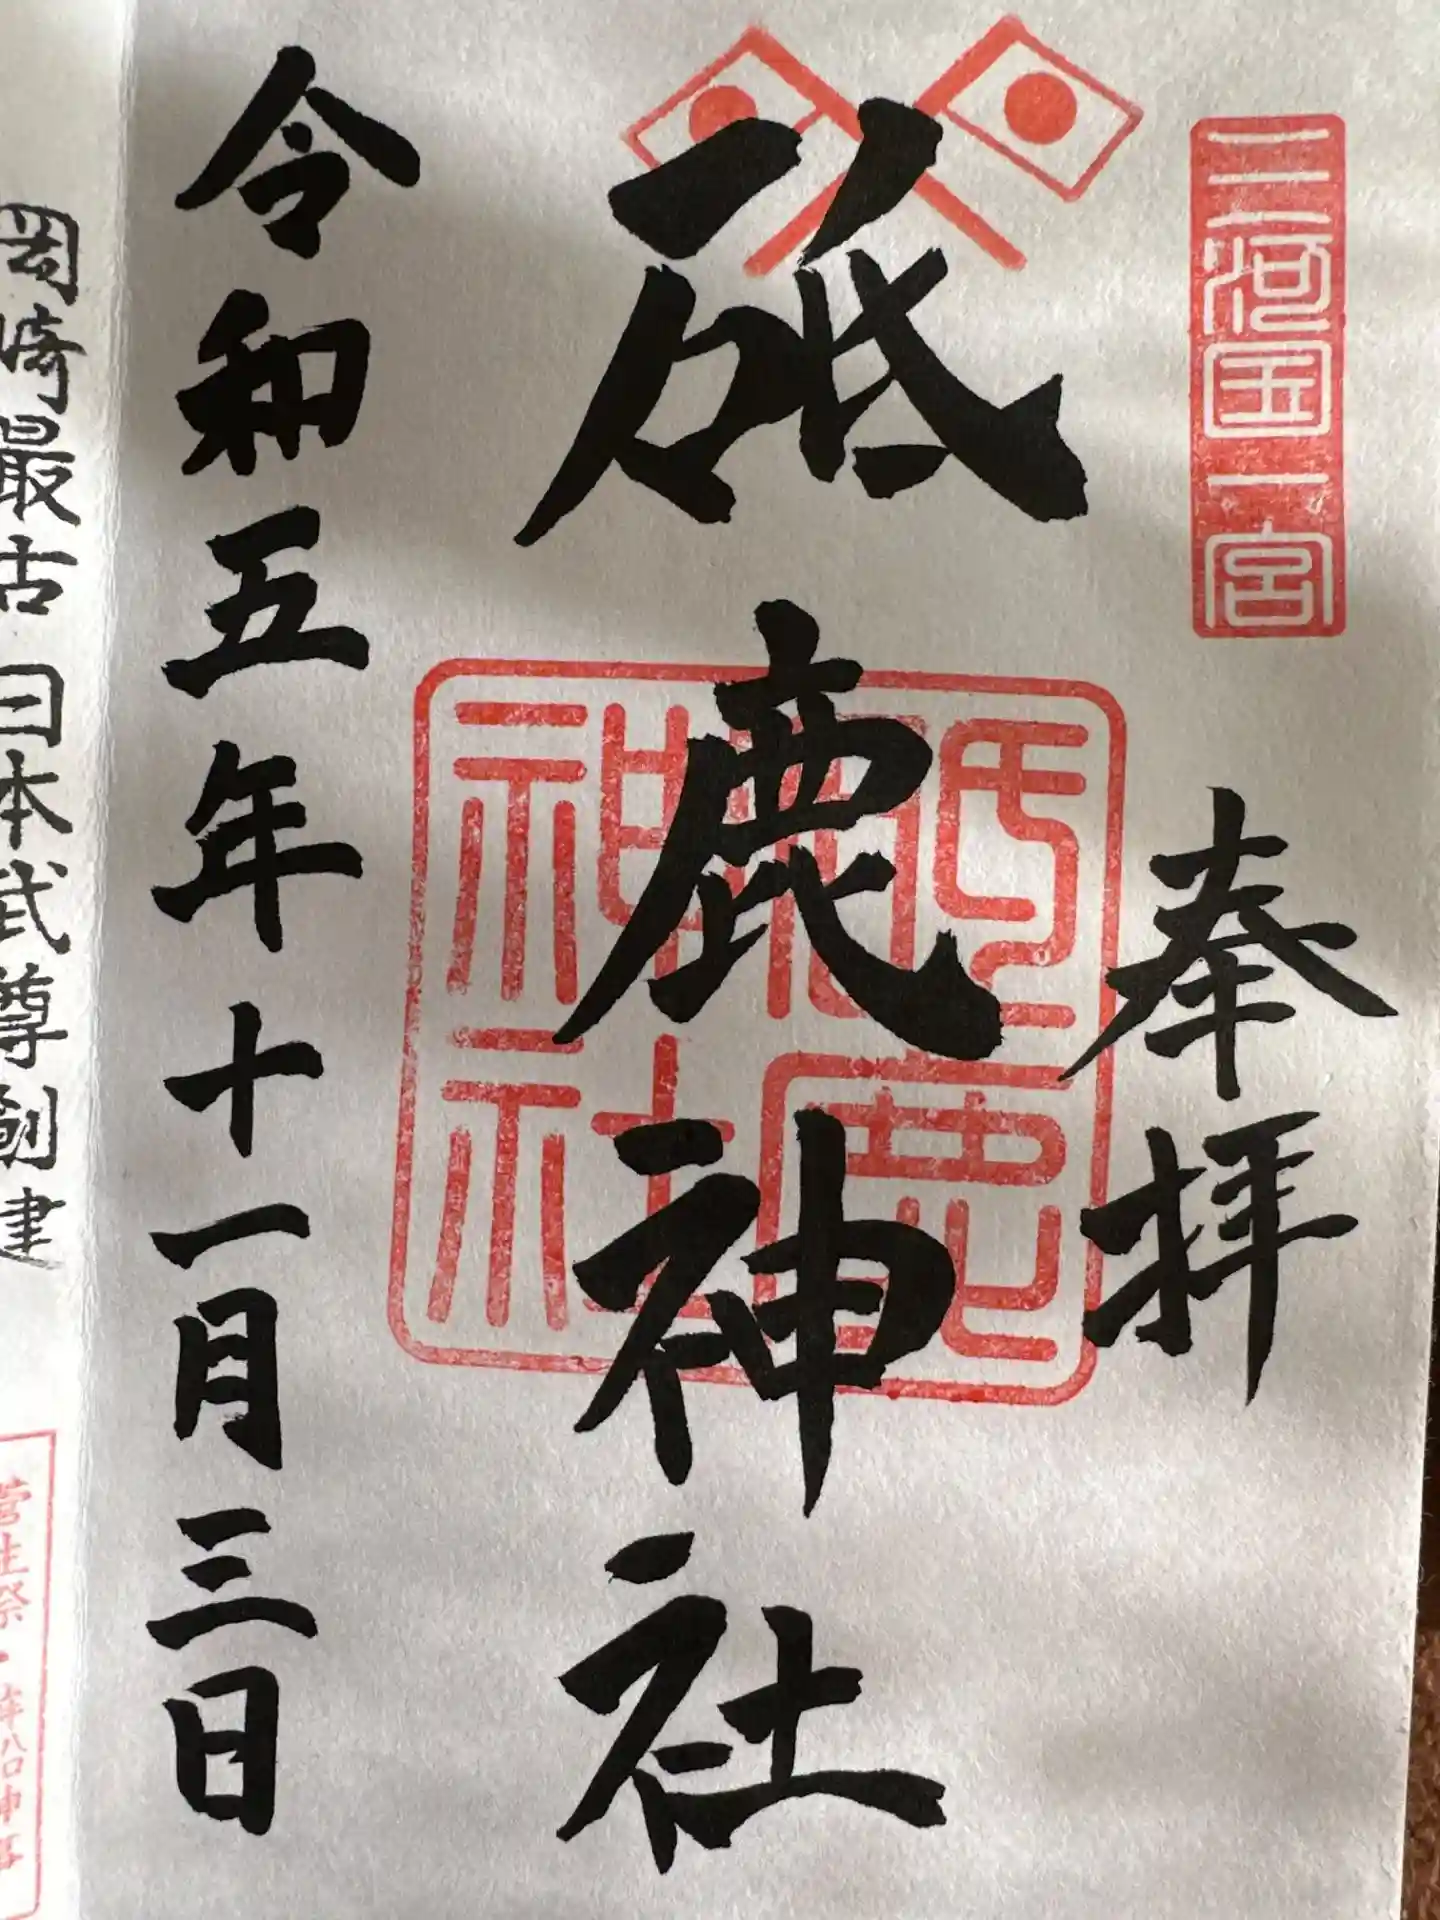 三河国一宮
奉拝
砥鹿神社
砥鹿
神社
令和五年十一月三日
岡崎最古 日本武尊創建
菅生祭・鉾船神事